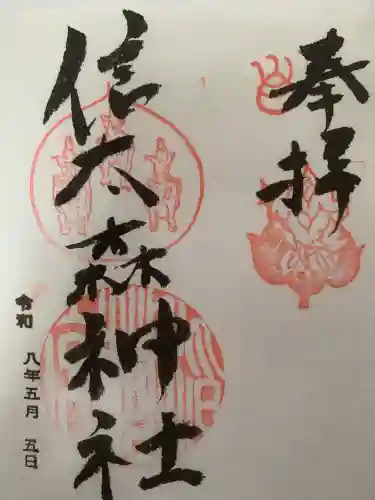 奉拝
信太森神社
令和八年五月五日